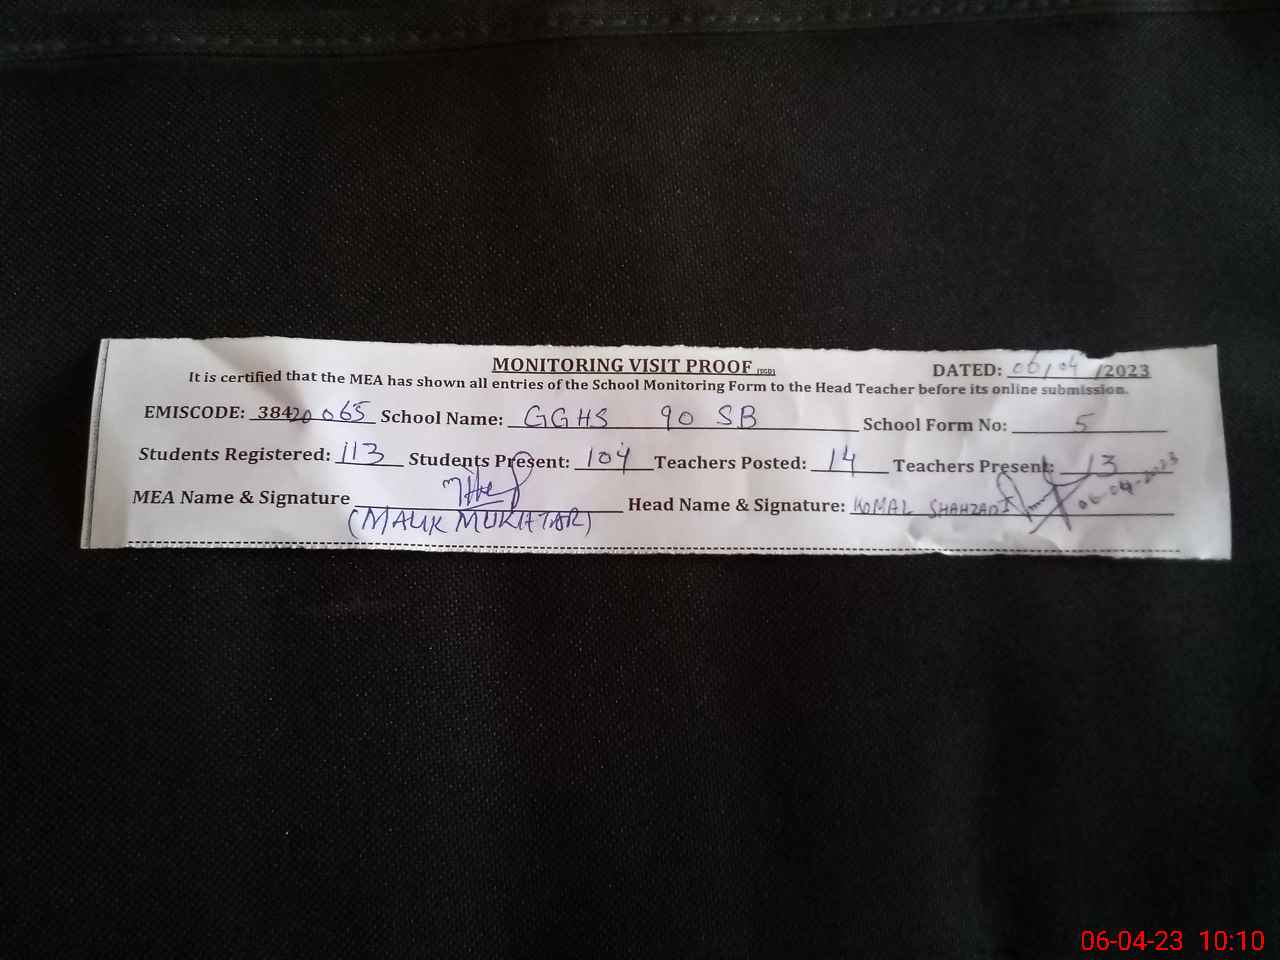 MONITORING VISIT PROOF (SGD) DATED: 06/04/2023
It is certified that the MEA has shown all entries of the School Monitoring Form to the Head Teacher before its online submission.
EMISCODE: 38420065 School Name: GGHS 90 SB School Form No: 5
Students Registered: 113 Students Present: 104 Teachers Posted: 14 Teachers Present: 13
MEA Name & Signature Head Name & Signature: KOMAL SHAHZADI 06-04-2023
(MALIK MUKHTAR)
06-04-23 10:10